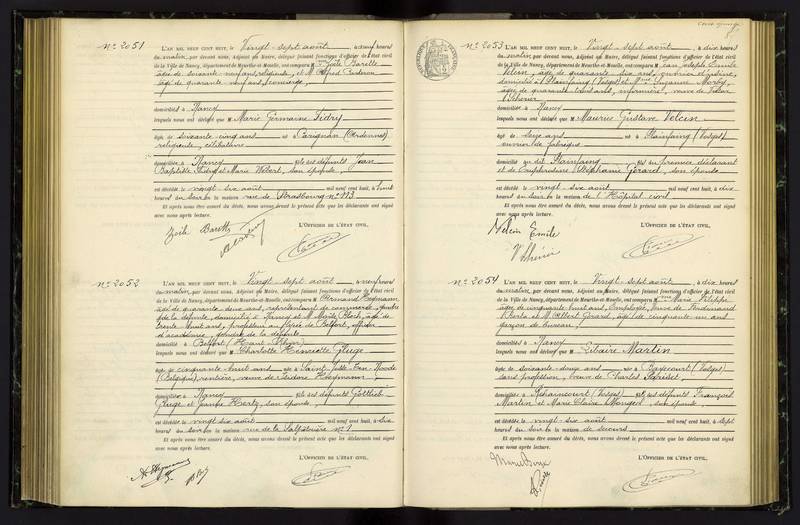 Nº 2051
L'AN MIL NEUF CENT HUIT, le Vingt-sept août, à neuf heures
du matin, par devant nous, Adjoint au Maire, délégué faisant fonctions d'officier de l'état civil
de la Ville de Nancy, département de Meurthe-et-Moselle, ont comparu M
âgée de soixante-neuf ans, religieuse, et M Alfred
âgé de quarante-neuf ans,
domiciliés à Nancy
lesquels nous ont déclaré que M Marie Germaine Fidry
âgée de soixante cinq ans né à Carignan (Ardennes)
religieuse, célibataire
domiciliée à Nancy fille des défunts Jean
Baptiste Fidry et Marie Wibert, son épouse
est décédée le vingt-six août mil neuf cent huit, à huit
heures du soir en la maison rue de Strasbourg nº 113
Et après nous être assuré du décès, nous avons dressé le présent acte que les déclarants ont signé
avec nous après lecture.
L'OFFICIER DE L'ÉTAT CIVIL,
Nº 2052
L'AN MIL NEUF CENT HUIT, le Vingt-sept août, à neuf heures
du matin, par devant nous, Adjoint au Maire, délégué faisant fonctions d'officier de l'état civil
de la Ville de Nancy, département de Meurthe-et-Moselle, ont comparu M Armand Heymann
âgé de quarante deux ans, représentant de commerce, gendre
de la défunte, domicilié à Nancy et M Bloch, âgé de
trente huit ans, professeur au lycée de Belfort, officier
d'académie, gendre de la défunte
domicilié à Belfort (Haut-Rhin)
lesquels nous ont déclaré que M Charlotte Henriette Gluge
âgée de cinquante huit ans née à Saint-Josse-Ten-Noode
(Belgique) rentière, veuve de Isidore Heymann
domiciliée à Nancy fille des défunts Gottlieb
Gluge et Hertz, son épouse
est décédée le vingt-six août mil neuf cent huit, à six
heures du soir en la maison rue de la Salpétrière nº 1
Et après nous être assuré du décès, nous avons dressé le présent acte que les déclarants ont signé
avec nous après lecture.
L'OFFICIER DE L'ÉTAT CIVIL,
Nº 2053
L'AN MIL NEUF CENT HUIT, le Vingt-sept août, à dix heures
du matin, par devant nous, Adjoint au Maire, délégué faisant fonctions d'officier de l'état civil
de la Ville de Nancy, département de Meurthe-et-Moselle, ont comparu M Jean Joseph Emile
Velcin, âgé de quarante six ans, ouvrier
domicilié à Plainfaing (Vosges) et Suzanne
âgée de quarante trois ans, infirmière, veuve de
domiciliée à Nancy
lesquels nous ont déclaré que M Maurice Gustave Velcin
âgé de seize ans né à Plainfaing (Vosges)
ouvrier de fabrique
domicilié au dit Plainfaing, fils du premier déclarant
et de Stéphanie Gérard, son épouse
est décédé le vingt-six août mil neuf cent huit, à dix
heures du soir en la maison de l'Hôpital civil
Et après nous être assuré du décès, nous avons dressé le présent acte que les déclarants ont signé
avec nous après lecture.
Velcin Emile
L'OFFICIER DE L'ÉTAT CIVIL,
Nº 2054
L'AN MIL NEUF CENT HUIT, le Vingt-sept août, à dix heures
du matin, par devant nous, Adjoint au Maire, délégué faisant fonctions d'officier de l'état civil
de la Ville de Nancy, département de Meurthe-et-Moselle, ont comparu Marie
âgée de cinquante huit ans, employée, veuve de Ferdinand
et M Albert Gérard, âgé de cinquante un ans
garçon de bureau
domiciliés à Nancy
lesquels nous ont déclaré que M Libaire Martin
âgée de soixante-douze ans née à Bazecourt (Vosges)
sans profession, veuve de Charles
domiciliée à (Vosges) fille des défunts François
Martin et Marie Claire Mongeot, son épouse
est décédée le vingt-six août mil neuf cent huit, à sept
heures du soir en la maison de secours
Et après nous être assuré du décès, nous avons dressé le présent acte que les déclarants ont signé
avec nous après lecture.
L'OFFICIER DE L'ÉTAT CIVIL,